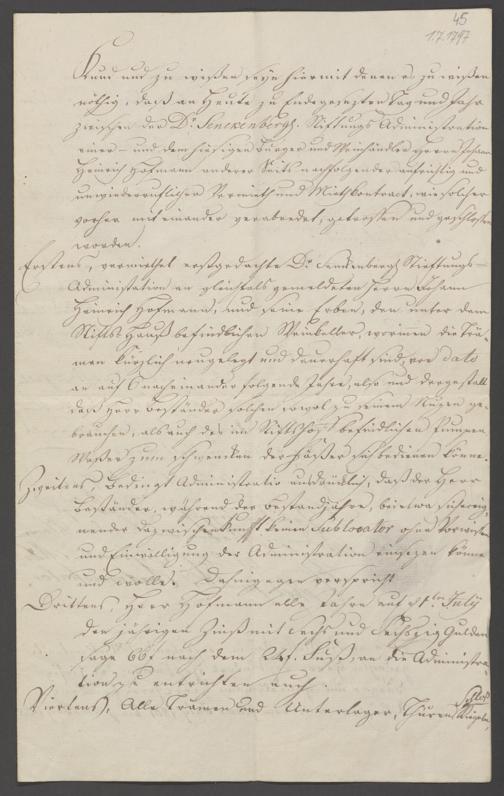 45
1.7.1797
Kund und zu wißen seye hiermit denen es zu wißen
nöthig, daß an Heute zu Endegesezten Tag und Jahr
zwischen der Dr. Senckenbergh. Stiftungs Administration
einer- und dem hiesigen Burger und Weinhändler Herrn Johann
Heinrich Hofmann anderer Seits nachfolgender aufrichtig und
unwiederruflicher Vermieth und Miethkontract, wie solcher
vorher mit einander verabredet, getroffen und geschloßen
worden.
Erstens, vermiethet erstgedachte Dr. Senckenbergh. Stiftungs-
Administation an gleichfals gemeldeten Herrn Johann
Heinrich Hofmann, und seine Erben, den unter dem
Stifts Hauß befindlichen Weinkeller, worinnen die Trä-
men kürzlich neugelegt und dauerhaft sind, von dato
an auf 6 nacheinander folgende Jahre, also und dergestalt
daß Herr Beständer solchen sowol zu seinem Nuzen ge-
brauchen, als auch des im Stiftshof befindlichen Pumpen
Waßer zum schwenken der Fäßer sich bedienen könne.
Zweitens, Bedingt Administratio ausdrücklich, daß der Herr
Beständer, während der Bestandjahre, bei etwa sich ereig-
nender dazwischen Kunft keinen Sublocator ohne Vorwißen
und Einwilligung der Administration einsezen könne
und wolle. Dahingegen verspricht
Drittens, Herr Hofmann alle Jahre auf d. 1ten July
den jährigen Zinß mit Sechs und Sechszig Gulden
sage 66f nach dem 24f. Fuß an die Administra-
tion zu entrichten auch
Viertens, Alle Trämen und Unterlager, Thüren